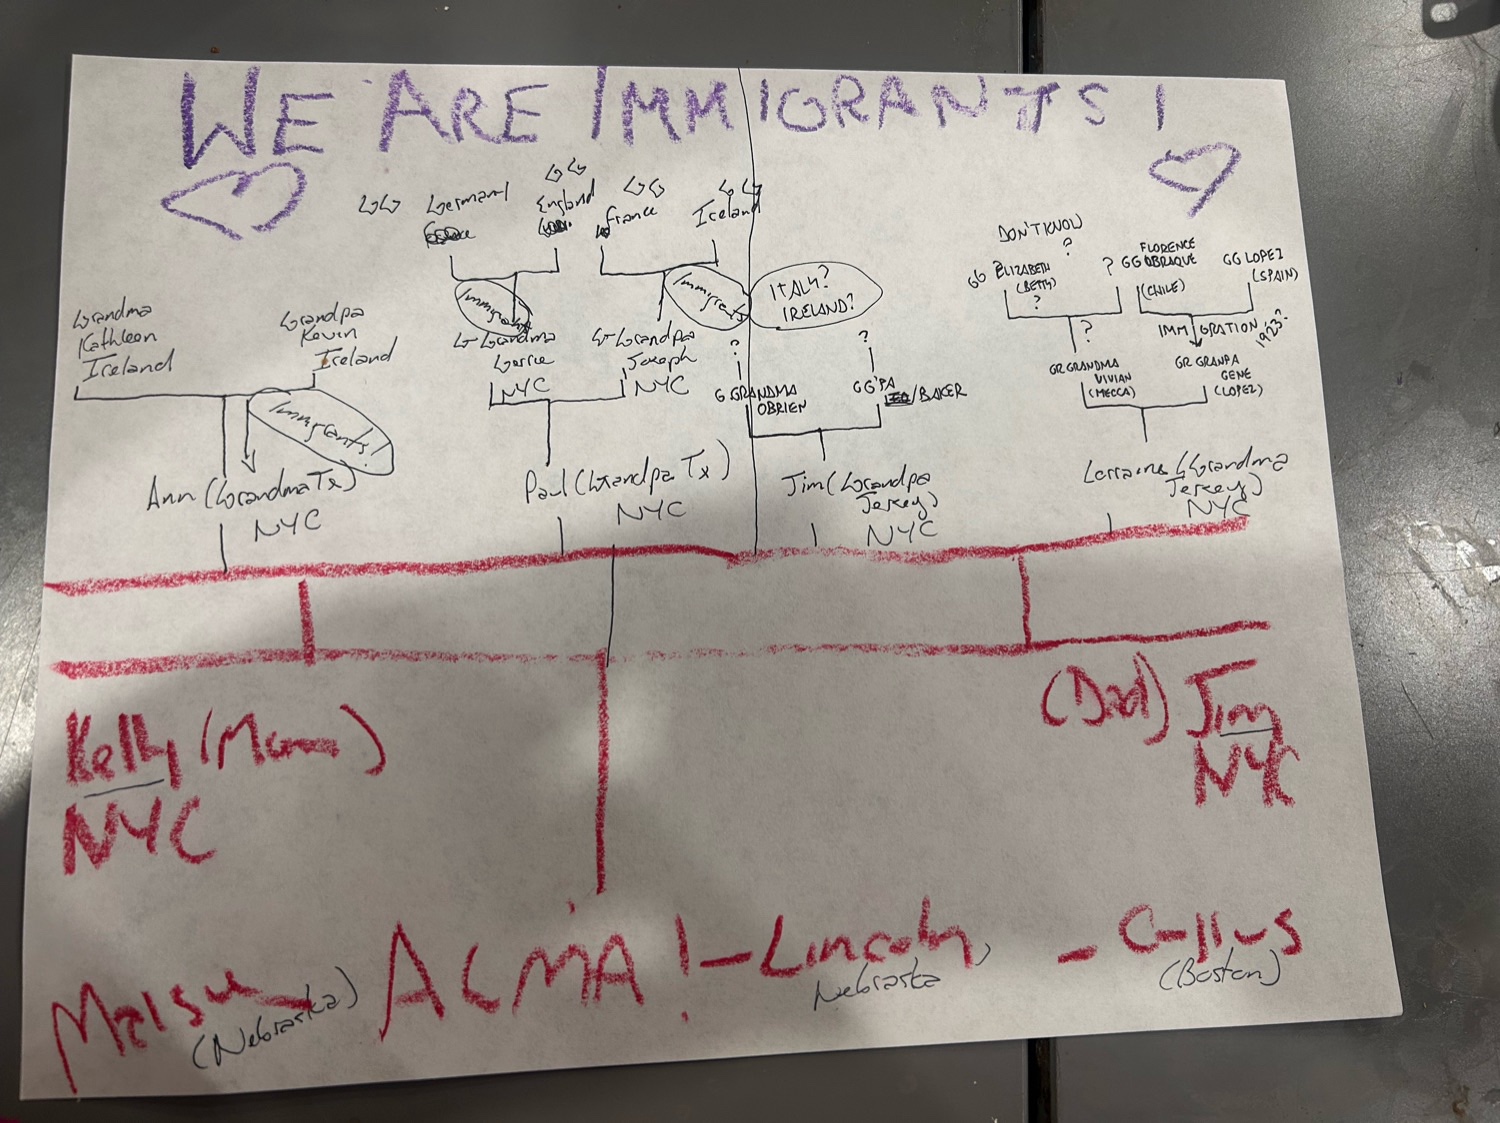 WE ARE IMMIGRANTS!
GG Germany
GG England
GG France
GG Ireland
Grandma
Kathleen
Ireland
Grandpa
Kevin
Ireland
Immigrants!
Ann (Grandma Tx)
NYC
Immigrants
G-Grandma
NYC
G-Grandpa
Joseph
NYC
Immigrants
Paul (Grandpa Tx)
NYC
ITALY?
IRELAND?
?
G GRANDMA
OBRIEN
?
GG'PA
/BAKER
Jim (Grandpa
Jersey)
NYC
DON'T KNOW
?
GG ELIZABETH
(BETTY)
?
?
FLORENCE
GG OBRAQUE
(CHILE)
GG LOPEZ
(SPAIN)
?
IMMIGRATION 1923?
GR GRANDMA
VIVIAN
(MECCA)
GR GRANPA
GENE
(LOPEZ)
Lorraine (Grandma
Jersey)
NYC
Kelly (Mom)
NYC
(Dad) Jim
NYC
(Nebraska)
- Lincoln
Nebraska
(Boston)